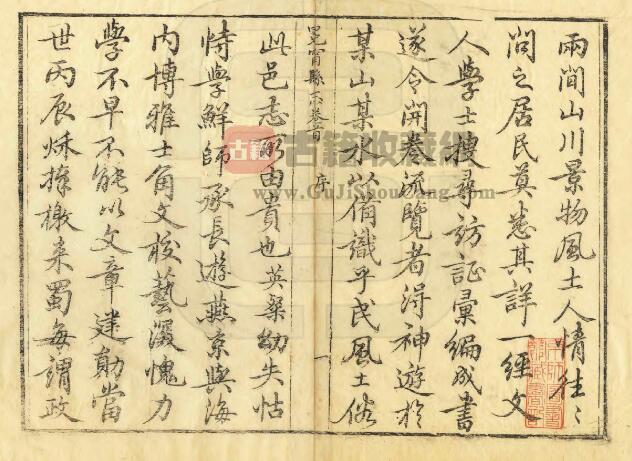 兩間山川景物風土人情往〻
問之居民莫悉其詳一經文
人學士搜尋訪証彙編成書
遂令開卷流覽者得神遊於
某山某水以備識乎民風土俗
冕甯縣志卷首 序 一
此邑志所由貴也英燊幼失怙
恃學鮮師承長遊燕京與海
内博雅士角文校藝深愧力
學不早不能以文章建勛當
世丙辰秋捧檄来蜀每謂政
古籍 古籍收藏網
www.GuJiShouCang.com